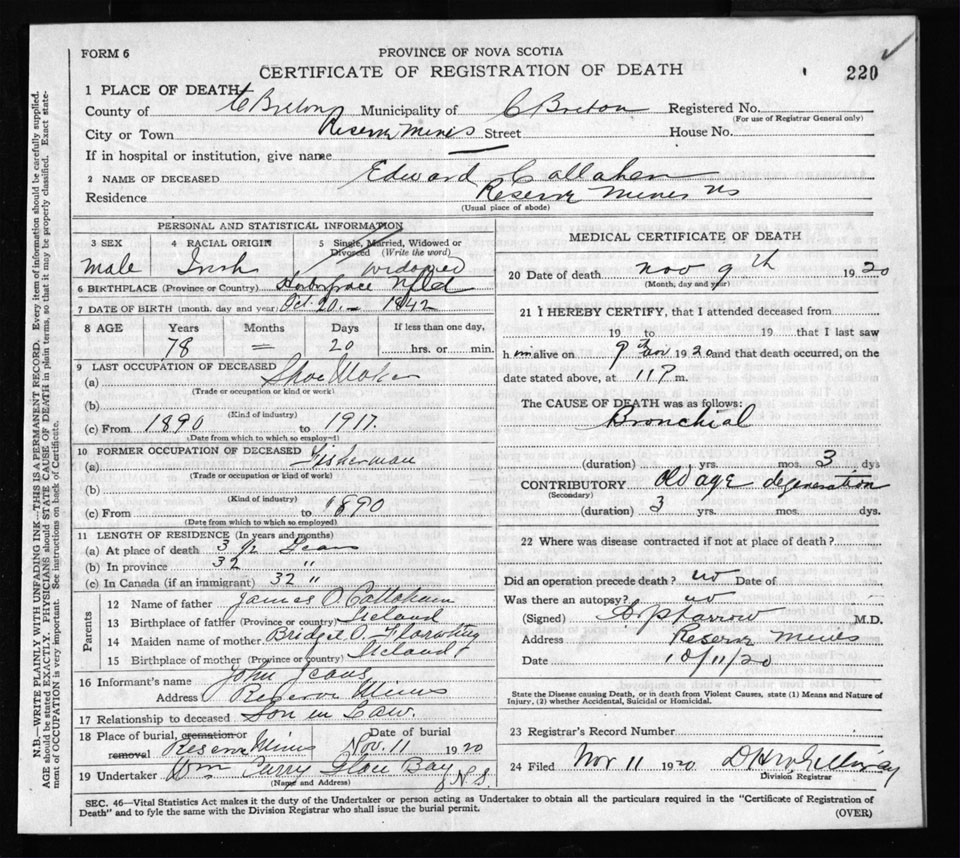 FORM 6
PROVINCE OF NOVA SCOTIA
CERTIFICATE OF REGISTRATION OF DEATH
220
1 PLACE OF DEATH
County of C Breton Municipality of C Breton Registered No.
(For use of Registrar General only)
City or Town Reserve Mines Street House No.
If in hospital or institution, give name
2 NAME OF DECEASED Edward Callahan
Residence Reserve Mines NS
(Usual place of abode)
PERSONAL AND STATISTICAL INFORMATION
3 SEX 4 RACIAL ORIGIN 5 Single, Married, Widowed or Divorced (Write the word)
Male Irish widowed
6 BIRTHPLACE (Province or Country) Harbor grace Nfld
7 DATE OF BIRTH (month, day and year) Oct. 20 - 1842
8 AGE Years Months Days If less than one day,
78 — 20 hrs. or min.
9 LAST OCCUPATION OF DECEASED
(a) Shoe Maker
(Trade or occupation or kind or work)
(b)
(Kind of industry)
(c) From 1890 to 1917.
(Date from which to which so employed)
10 FORMER OCCUPATION OF DECEASED
(a) Fisherman
(Trade or occupation or kind of work)
(b)
(Kind of industry)
(c) From to 1890
(Date from which to which so employed)
11 LENGTH OF RESIDENCE (In years and months)
(a) At place of death 3 1/2 Years
(b) In province 32 "
(c) In Canada (if an immigrant) 32 "
Parents
12 Name of father James O Callaham
13 Birthplace of father (Province or country) Ireland
14 Maiden name of mother Bridget O
15 Birthplace of mother (Province or country) Ireland
16 Informant's name John Jeans
Address Reserve Mines
17 Relationship to deceased Son in Law.
18 Place of burial, cremation or removal Date of burial
Reserve Mines Nov. 11 1920
19 Undertaker Wm Curry Glace Bay N.S.
(Name and Address)
MEDICAL CERTIFICATE OF DEATH
20 Date of death nov 9th 1920
(Month, day and year)
21 I HEREBY CERTIFY, that I attended deceased from
19 to 19 that I last saw
h im alive on 9th nov 1920 and that death occurred, on the
date stated above, at 11 P m.
The CAUSE OF DEATH was as follows:
Bronchial
(duration) yrs. mos. 3 dys
CONTRIBUTORY old age degeneration
(Secondary)
(duration) 3 yrs. mos. dys.
22 Where was disease contracted if not at place of death?
Did an operation precede death? no Date of
Was there an autopsy? no
(Signed) Sparrow M.D.
Address Reserve Mines
Date 10/11/20
State the Disease causing Death, or in death from Violent Causes, state (1) Means and Nature of
Injury, (2) whether Accidental, Suicidal or Homicidal.
23 Registrar's Record Number
24 Filed Nov 11 1920
Division Registrar
SEC. 46—Vital Statistics Act makes it the duty of the Undertaker or person acting as Undertaker to obtain all the particulars required in the "Certificate of Registration of
Death" and to fyle the same with the Division Registrar who shall issue the burial permit.
(OVER)
N.B.—WRITE PLAINLY WITH UNFADING INK—THIS IS A PERMANENT RECORD. Every item of information should be carefully supplied.
AGE should be stated EXACTLY. PHYSICIANS should STATE CAUSE OF DEATH in plain terms, so that it may be properly classified. Exact state-
ment of OCCUPATION is very important. See instructions on back of Certificate.